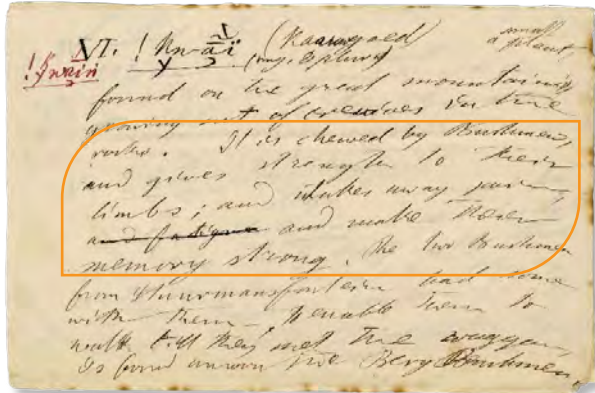 VI. ! Kn-a-i (Kaauwgoed) small
! kwain (Eng. Sphur) a plant,
found on the great mountains
growing out of crevices in the
rocks. It is chewed by Bushmen,
and gives strength to their
limbs; and takes away pain,
and fatigue and make their
memory strong. The two Bushmen
from Stuurmansfontein had some
with them to enable them to
walk till they met the waggon,
Is found among the Berg Bushmen.